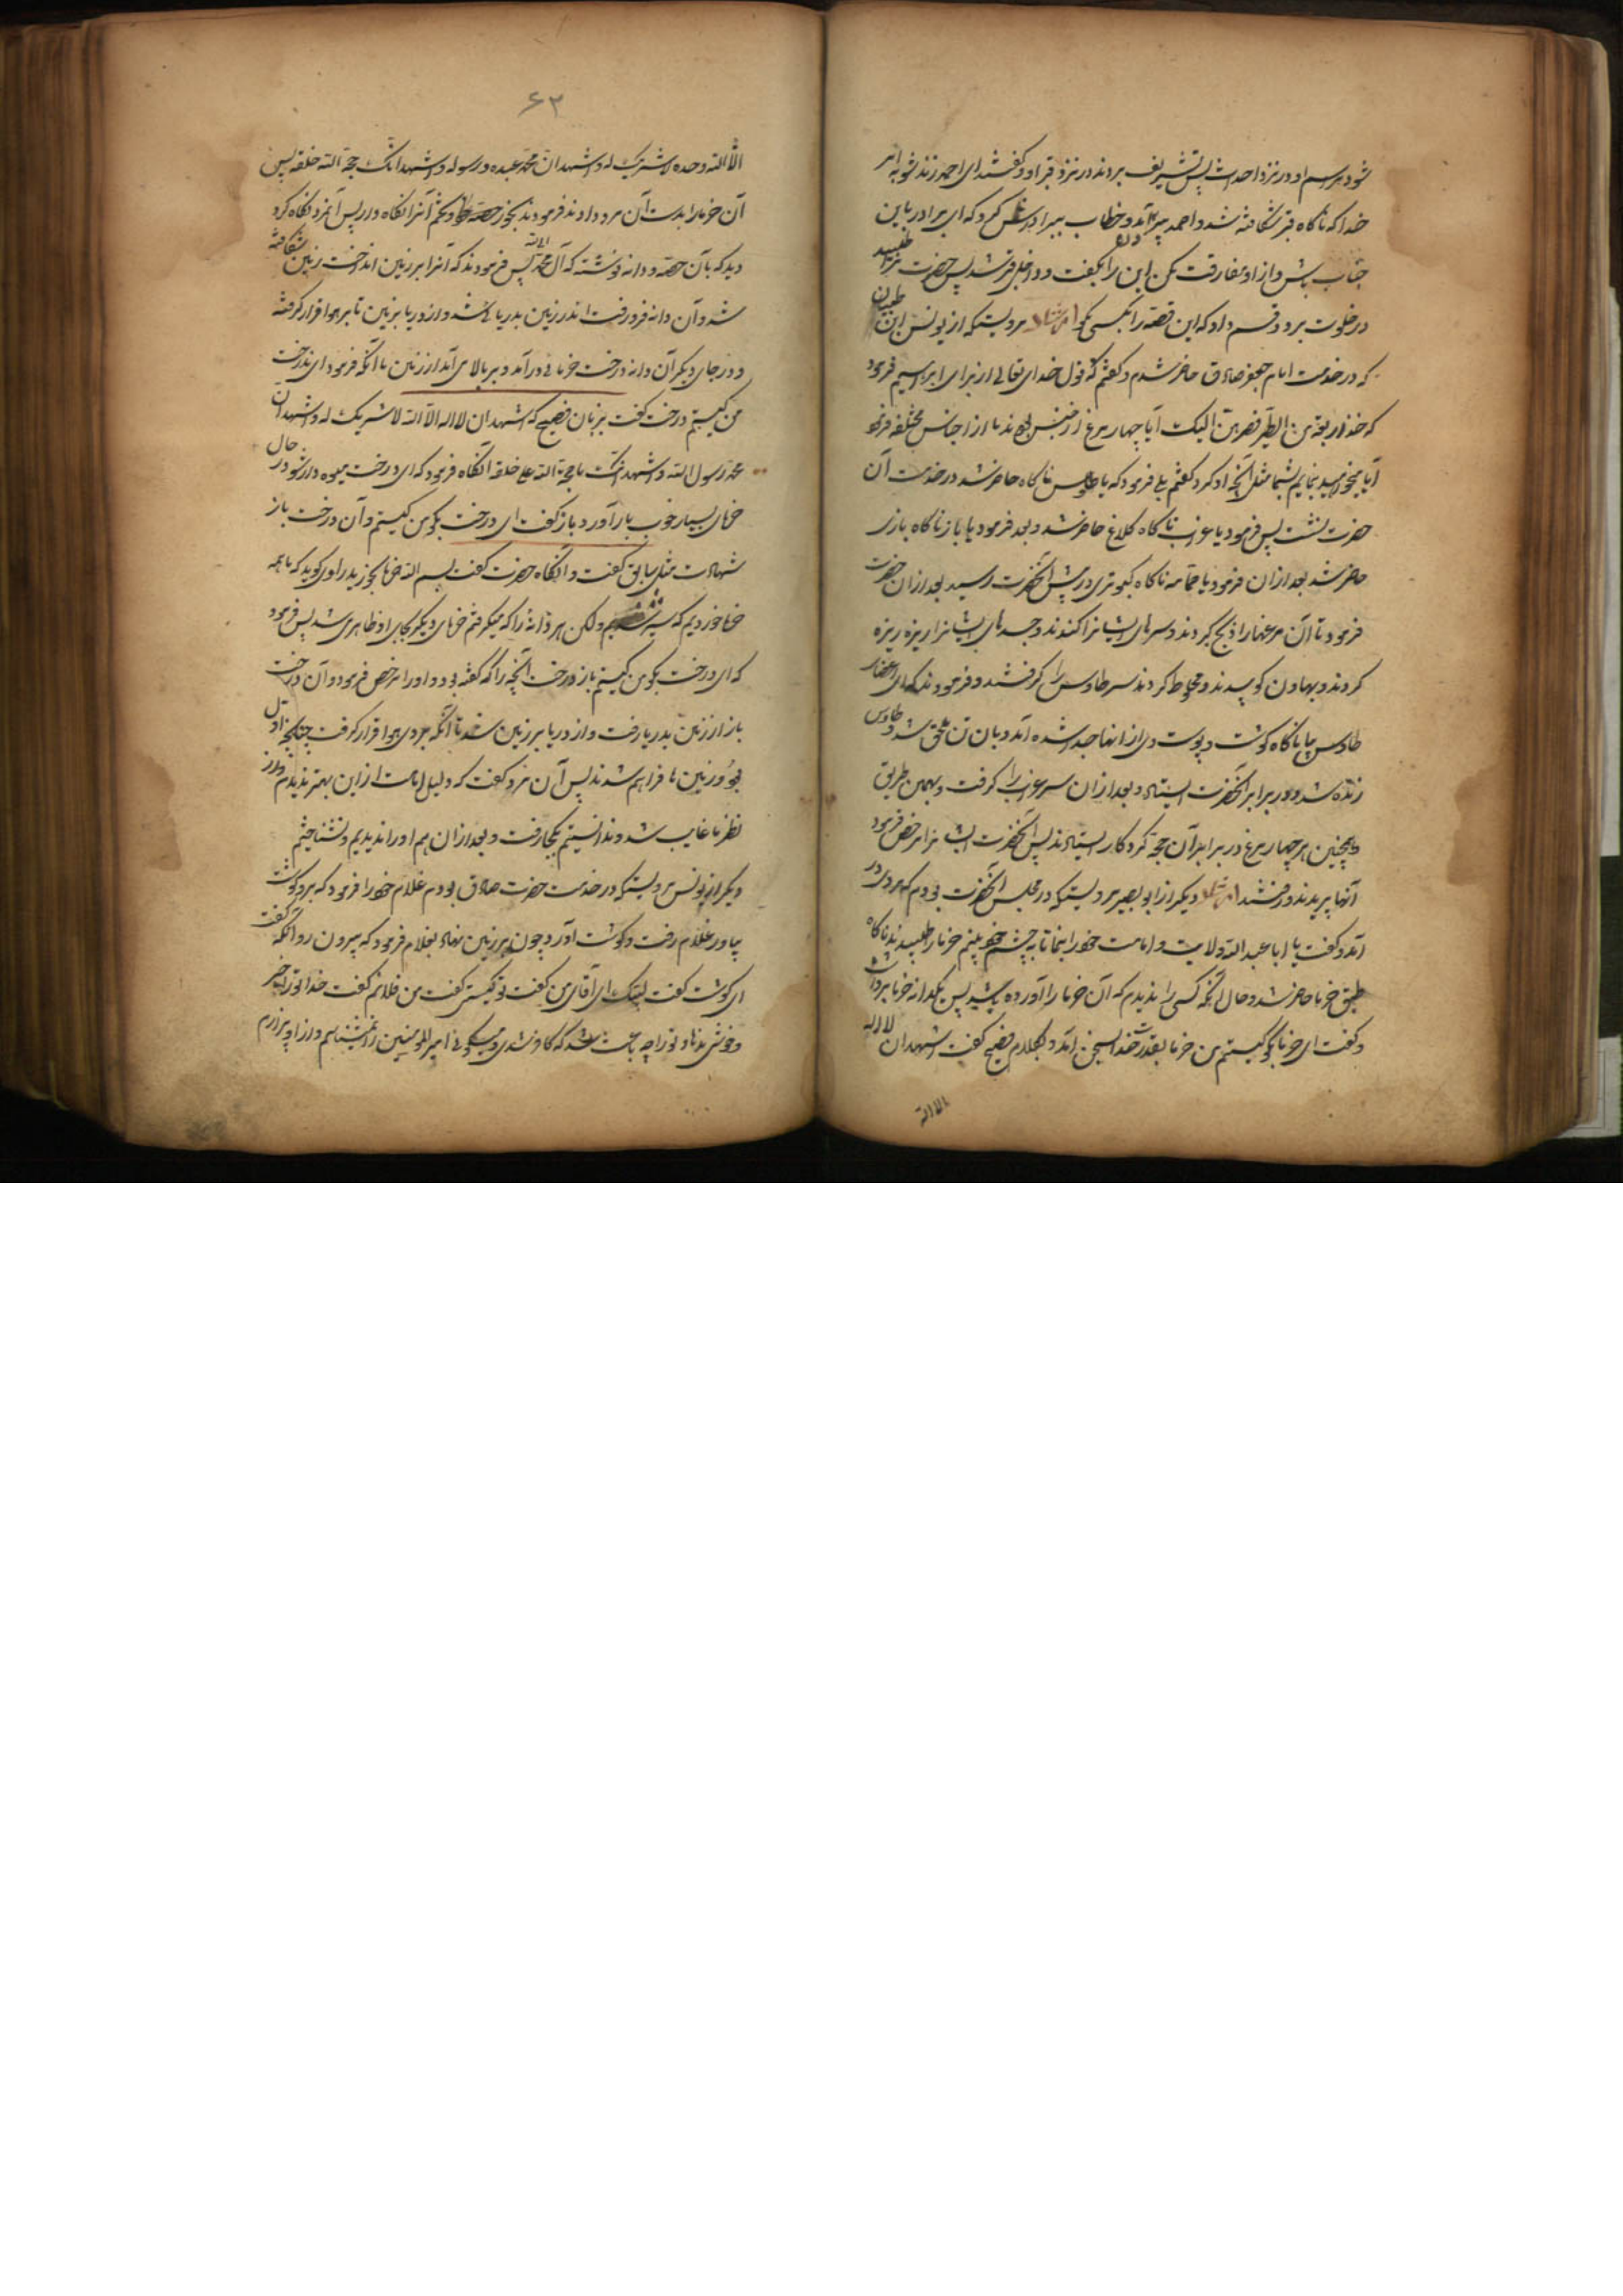 شود هر سیم او در نزد احد است پس تشریف بردند در نزد قبر او و گفتند ای احمد زنده شو به امر
خدا که ناگاه قبر شکافته شد و احمد بیرون آمد و خطاب ببرادرش کرد که ای برادر باین
جناب باش و از او مفارقت مکن این را بگفت و داخل قبر شد پس حضرت مرا طلبید
در خلوت برد و قسم داد که این قصه را بکسی مگو ایضا مرویست که از یونس ابن ظبیان
که در خدمت امام جعفر صادق حاضر شدم و گفتم که قول خدای تعالی از برای ابراهیم فرمود
که خذ اربعة من الطیر فصرهن الیک آیا چهار مرغ از جنس بودند یا از اجناس مختلفه فرمود
آیا میخواهید بنمایم بشما مثل آنچه او کرد گفتم بلی فرمود که یا طاوس ناگاه حاضر شد در خدمت آن
حضرت نشست پس فرمود یا غراب ناگاه کلاغ حاضر شد و بعد فرمود یا باز ناگاه بازی
حاضر شد بعد از آن فرمود یا حمامه ناگاه کبوتری در پیش آنحضرت رسید بعد از آن حضرت
فرمود تا آن مرغها را ذبح کردند و سرهای ایشانرا کندند و جسدهای ایشانرا ریزه ریزه
کردند و بهاون کوبیدند و مخلوط کردند سر طاوس را گرفتند و فرمودند که ای اعضاء
طاوس بیا ناگاه گوشت و پوست وی از آنها جدا شده آمد و بآن تن ملحق شد و طاوس
زنده شد و در برابر آنحضرت ایستاد و بعد از آن سر غراب را گرفت و بهمین طریق
و همچنین هر چهار مرغ در برابر آن حجة کردگار ایستادند پس آنحضرت ایشانرا مرخص فرمود
آنها پریدند و رفتند ایضا دیگر از ابو بصیر مرویست که در مجلس آنحضرت بودم که مردی در
آمد و گفت یا ابا عبد الله ولایت و امامت خود را بنما تا به چشم خود ببینم خرما را طلبیدند ناگاه
طبق خرما حاضر شد و حال آنکه کسی را ندیدم که آن خرما را آورده باشد پس یکدانه خرما برداشت
و گفت ای خرما بگو کیستم من خرما بقدرت خدا بسخن آمد و بکلام فصیح گفت اشهد ان لا اله
الا الله
۶۳
الا الله وحده لا شریک له و اشهد ان محمد عبده و رسوله و اشهد انک حجة الله خلقه پس
آن خرما را بدست آن مرد دادند فرمودند بخور حصه خرما و تخم آنرا نگاه دار پس آنمرد نگاه کرد
دید که بآن حصه و دانه نوشته که آل محمد پس فرمودند که آنرا بر زمین انداخت زمین شکافته
شد و آن دانه فرو رفت اندر زمین بدریا شد و از دریا بزمین تا بر هوا قرار گرفته
و در جای دیگر آن دانه درخت خرمائی در آمد و بر بالا می آمد از زمین تا آنکه فرمود ای درخت
من کیستم درخت گفت بزبان فصیح که اشهد ان لا اله الا الله لا شریک له و اشهد ان
محمد رسول الله و اشهد انک یا حجة الله علی خلقه انگاه فرمود که ای درخت میوه دار شو در حال
خرمای بسیار خوب بار آورد و باز گفت ای درخت بگو من کیستم و آن درخت باز
شهادت مثل سابق گفت و انگاه حضرت گفت بسم الله خرما بخورید راوی گوید که ما همه
خرما خوردیم که سیر شدیم ولکن هر دانه را که میگرفتم خرمای دیگر بجای او ظاهر می شد پس فرمود
که ای درخت بگو من کیستم باز درخت آنچه را که گفته بود و او را مرخص فرمود و آن درخت
باز از زمین بدریا رفت و از دریا بر زمین شد تا آنکه بر روی هوا قرار گرفت چنانچه اول
بود و زمین ها فراهم شدند پس آن مرد گفت که دلیل امامت از این بهتر ندیدم و از
نظر ما غایب شد و ندانستیم بکجا رفت و بعد از آن هم او را ندیدیم و نشناختیم
دیگر از یونس مرویست که در خدمت حضرت صادق بودم غلام خود را فرمود که برو گوشت
بیاور غلام رفت و گوشت آورد چون بر زمین نهاد بغلام فرمود که بیرون رو آنگه گفت
ای گوشت گفت لبیک ای آقای من گفت تو کیستی گفت من فلانم گفت خدا تو را خیر
و خوشی ندهاد تو را چه باعث شد که کافر شدی و میگوئی امیر المومنین را نمیشناسم و از او بیزارم